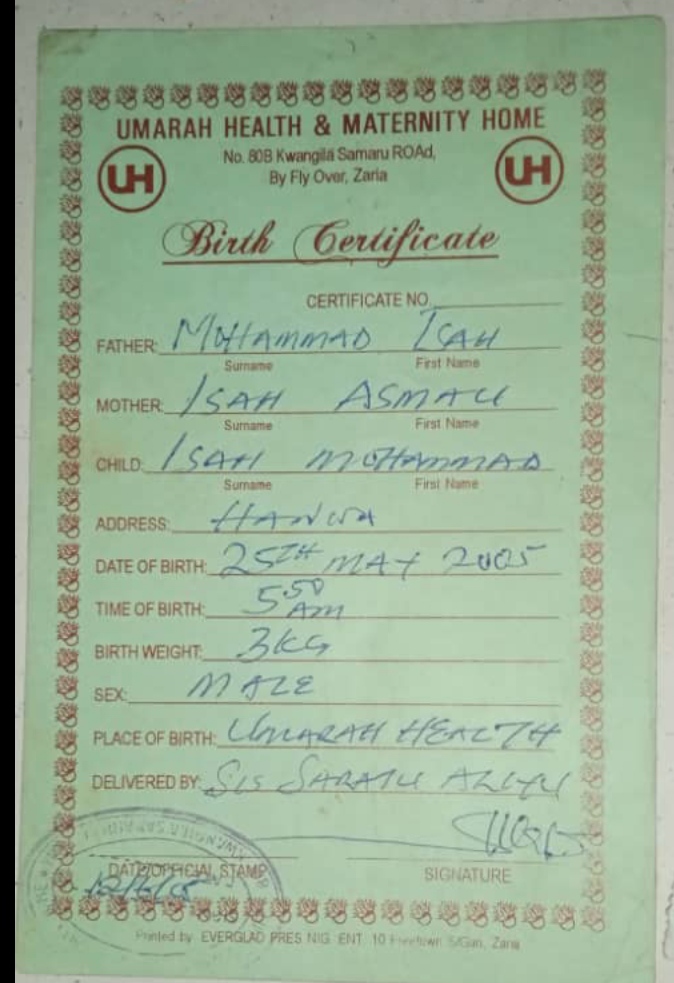 UMARAH HEALTH & MATERNITY HOME
No. 80B Kwangila Samaru ROAd,
By Fly Over, Zaria
UH
UH
Birth Certificate
CERTIFICATE NO.
FATHER: MOHAMMAD ISAH
Surname First Name
MOTHER: ISAH ASMAU
Surname First Name
CHILD: ISAH MOHAMMAD
Surname First Name
ADDRESS: HANWA
DATE OF BIRTH: 25TH MAY 2005
TIME OF BIRTH: 5 50 AM
BIRTH WEIGHT: 3KG
SEX: MALE
PLACE OF BIRTH: UMARAH HEALTH
DELIVERED BY: SIS SARATU ALIYU
DATE/OFFICIAL STAMP
SIGNATURE
Printed by EVERGLAD PRES NIG. ENT. 10 Freetown S/Gari, Zaria